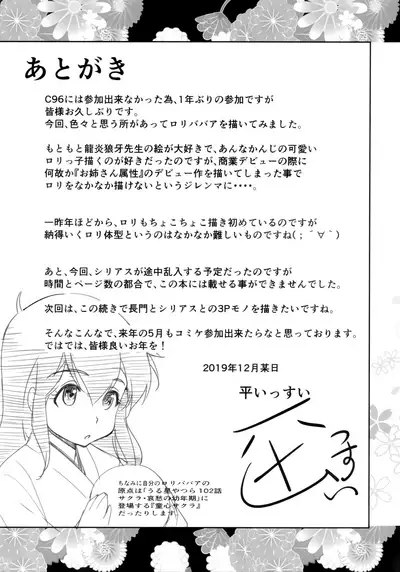 あとがき
C96には参加出来なかった為、1年ぶりの参加ですが
皆様お久しぶりです。
今回、色々と思う所があってロリババアを描いてみました。
もともと龍炎狼牙先生の絵が大好きで、あんなかんじの可愛い
ロリっ子描くのが好きだったのですが、商業デビューの際に
何故か『お姉さん属性』のデビュー作を描いてしまった事で
ロリをなかなか描けないというジレンマに・・・・。
一昨年ほどから、ロリもちょこちょこ描き初めているのですが
納得いくロリ体型というのはなかなか難しいものですね(；´∀｀)
あと、今回、シリアスが途中乱入する予定だったのですが
時間とページ数の都合で、この本には載せる事ができませんでした。
次回は、この続きで長門とシリアスとの3Pモノを描きたいですね。
そんなこんなで、来年の5月もコミケ参加出来たらなと思っております。
ではでは、皆様良いお年を！
2019年12月某日
平いっすい
平
いっすい
ちなみに自分のロリババアの
原点は「うる星やつら102話
サクラ・哀愁の幼年期」に
登場する『童心サクラ』
だったりします